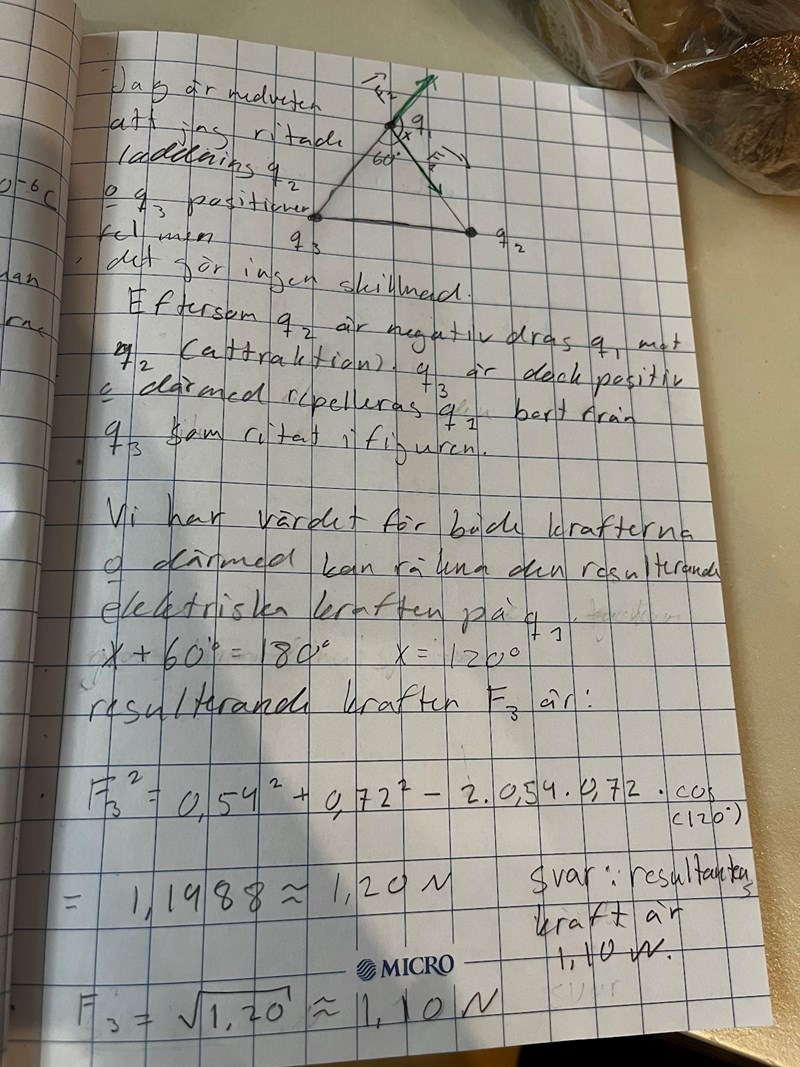 Jag är medveten
att jag ritade
laddning q2
o q3 positioner
fel men
det gör ingen skillnad.
F2
q1
x
60°
F1
q3
q2
Eftersom q2 är negativ dras q1 mot
q2 (attraktion). q3 är dock positiv
o därmed repelleras q1 bort från
q3 som ritat i figuren.
Vi har värdet för både krafterna
o därmed kan räkna den resulterande
elektriska kraften på q1
x + 60° = 180° x = 120°
resulterande kraften F3 är:
F3² = 0,54² + 0,72² - 2·0,54·0,72·cos
(120°)
= 1,1988 ≈ 1,20 N
Svar: resultantens
kraft är
1,10 N.
MICRO
F3 = √1,20 ≈ 1,10 N
0-6C